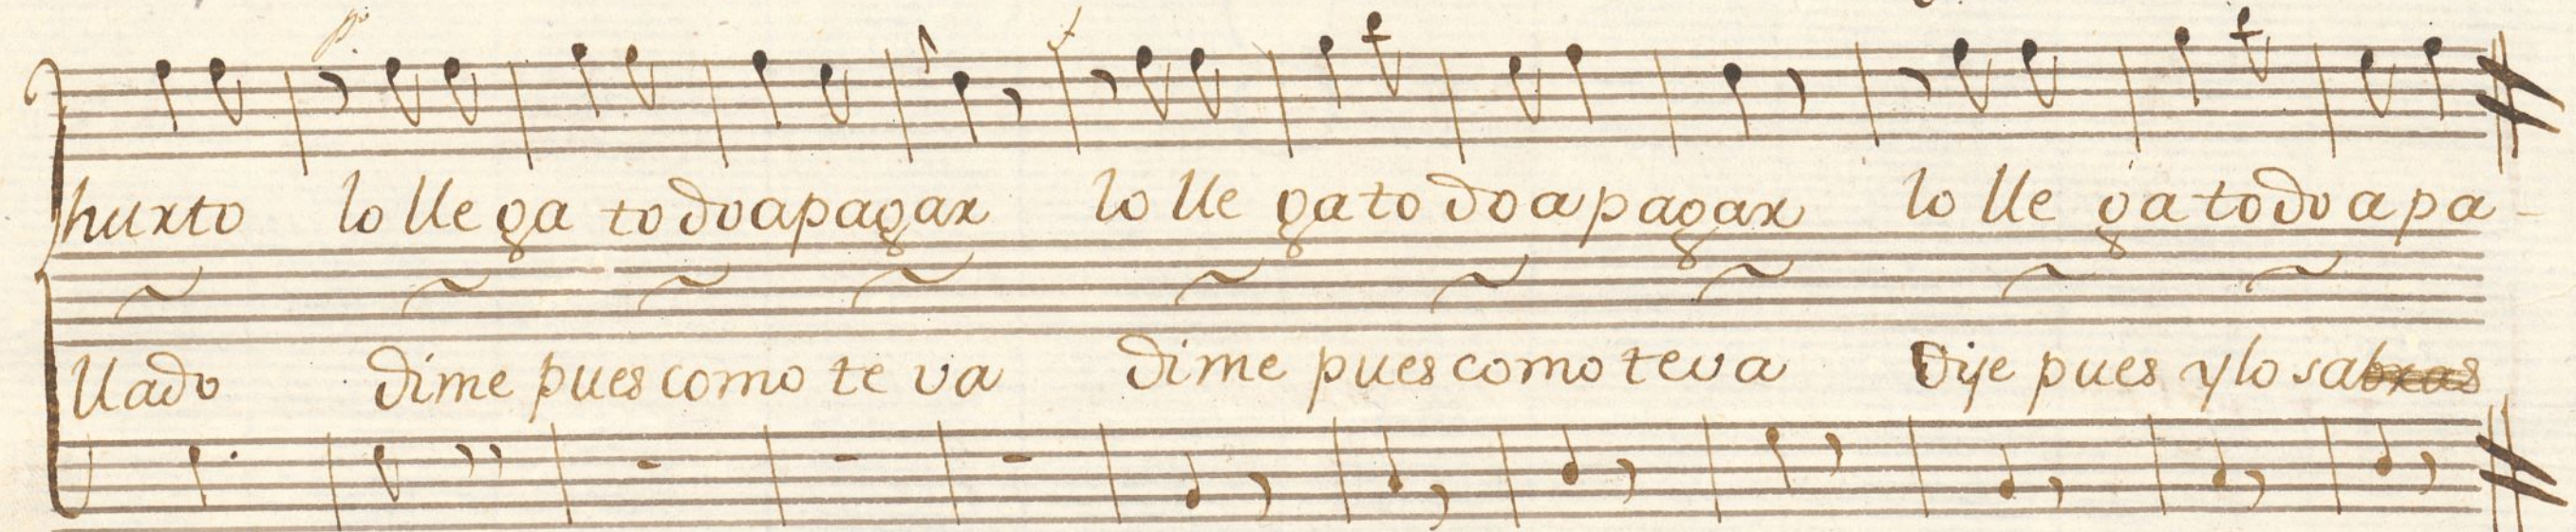 p f
hurto lo llega todo apagar lo llega todo apagar lo llega todo apa-
llado dime pues como te va dime pues como te va Dije pues y lo sabras